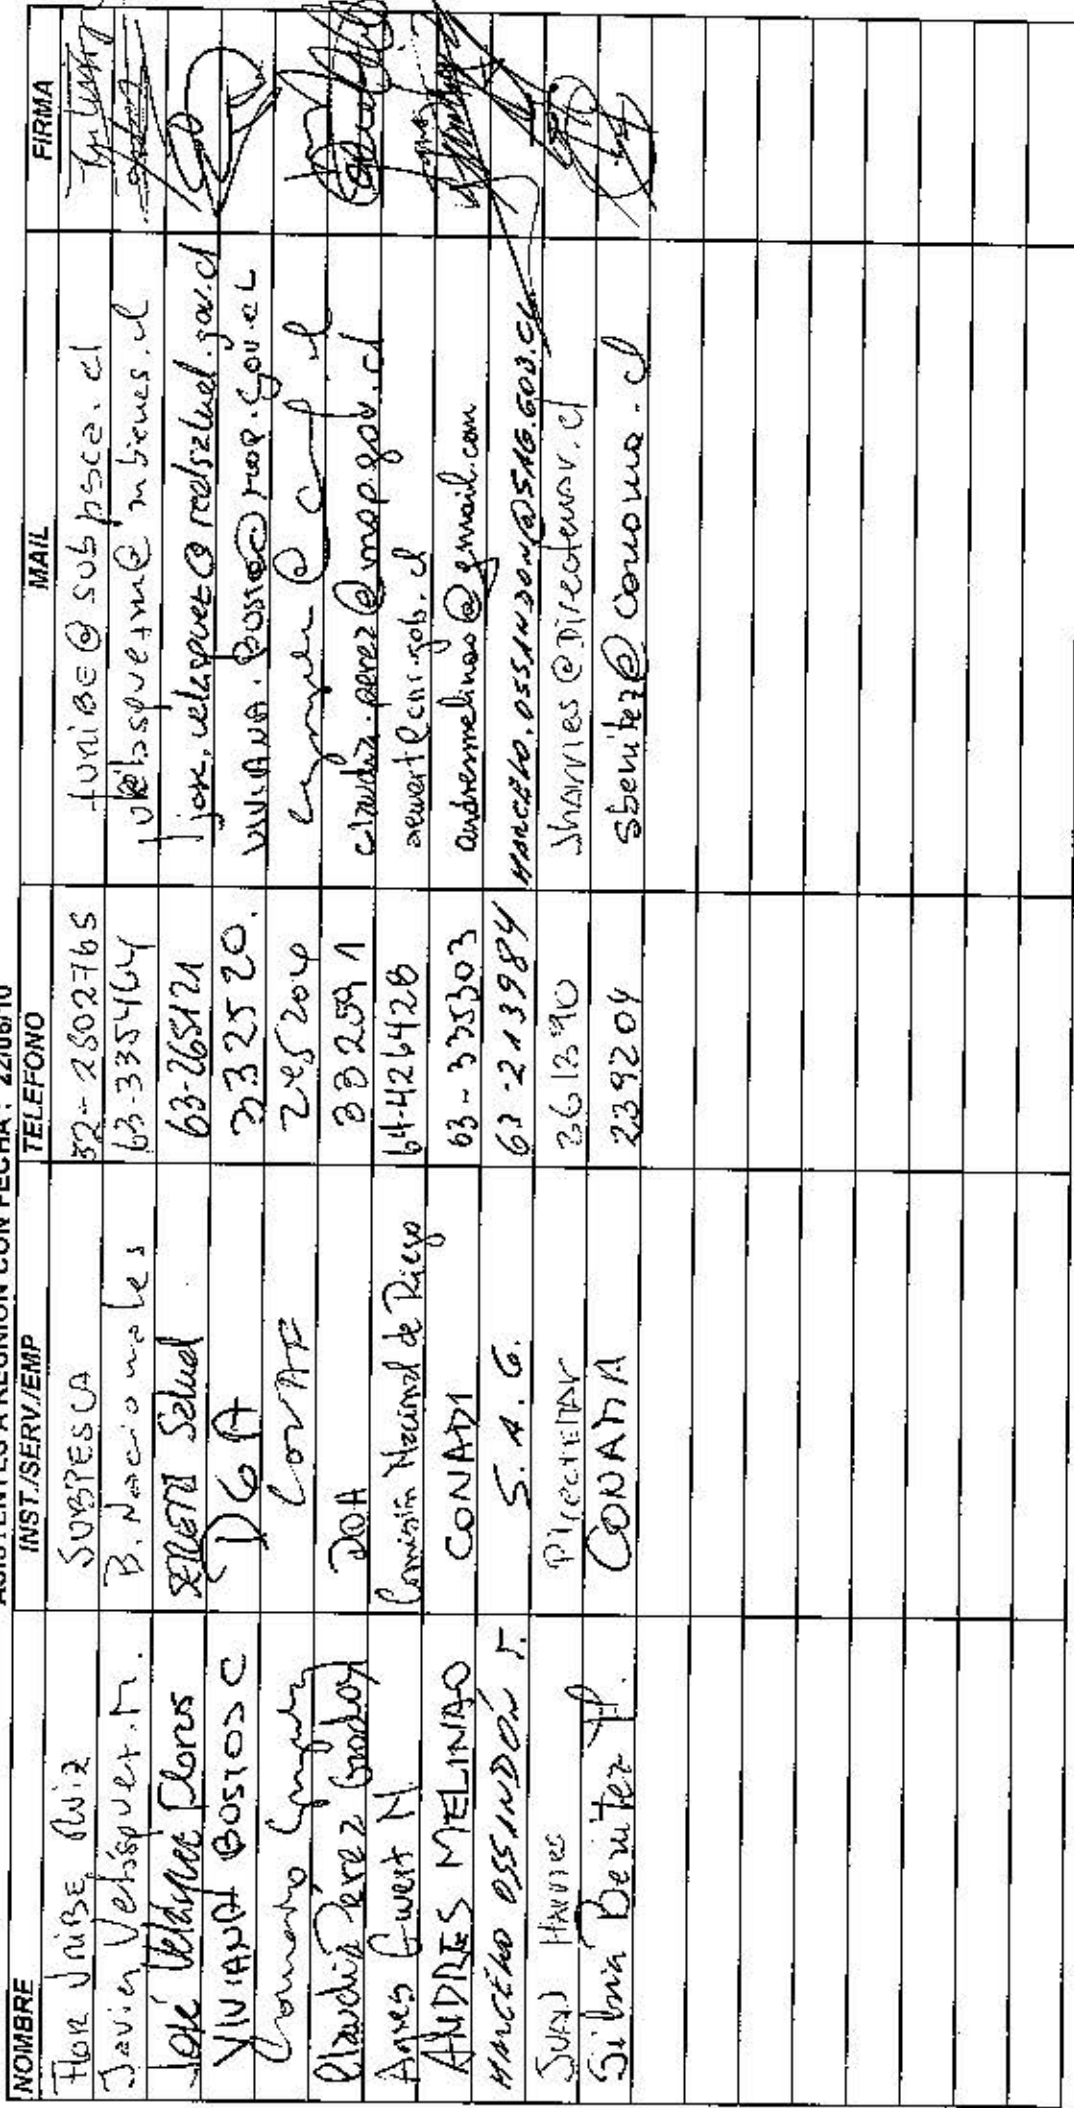 ASISTENTES A REUNION CON FECHA : 22/06/10
NOMBRE INST./SERV./EMP TELEFONO MAIL FIRMA
Flor Uribe Ruiz SUBPESCA 32-2502765 furibe@subpsca.cl
Javier Velásquez.M. B. Nacionales 63-335464 jvelasquezm@mbienes.cl
José Velásquez Flores SEREMI Salud 63-265121 jose.velasquez@redsalud.gov.cl
VIVIANA BUSTOS C DGA 332520. VIVIANA.BUSTOS@mop.gov.cl
CONAF 245204
Claudia Perez Godoy DOH 332591 claudia.perez@mop.gov.cl
Ewert N Comisión Nacional de Riego 64-426428 aewert@cnr.gob.cl
ANDRES MELINAO CONADI 63-335303 andresmelinao@gmail.com
MARCELO OSSANDÓN T. S.A.G. 63-213984 MARCELO.OSSANDON@SAG.GOB.CL
JUAN Harries Directemar 361390 Jharries@Directemar.cl
Silvia Benitez P. CONAMA 239204 sbenitez@conama.cl